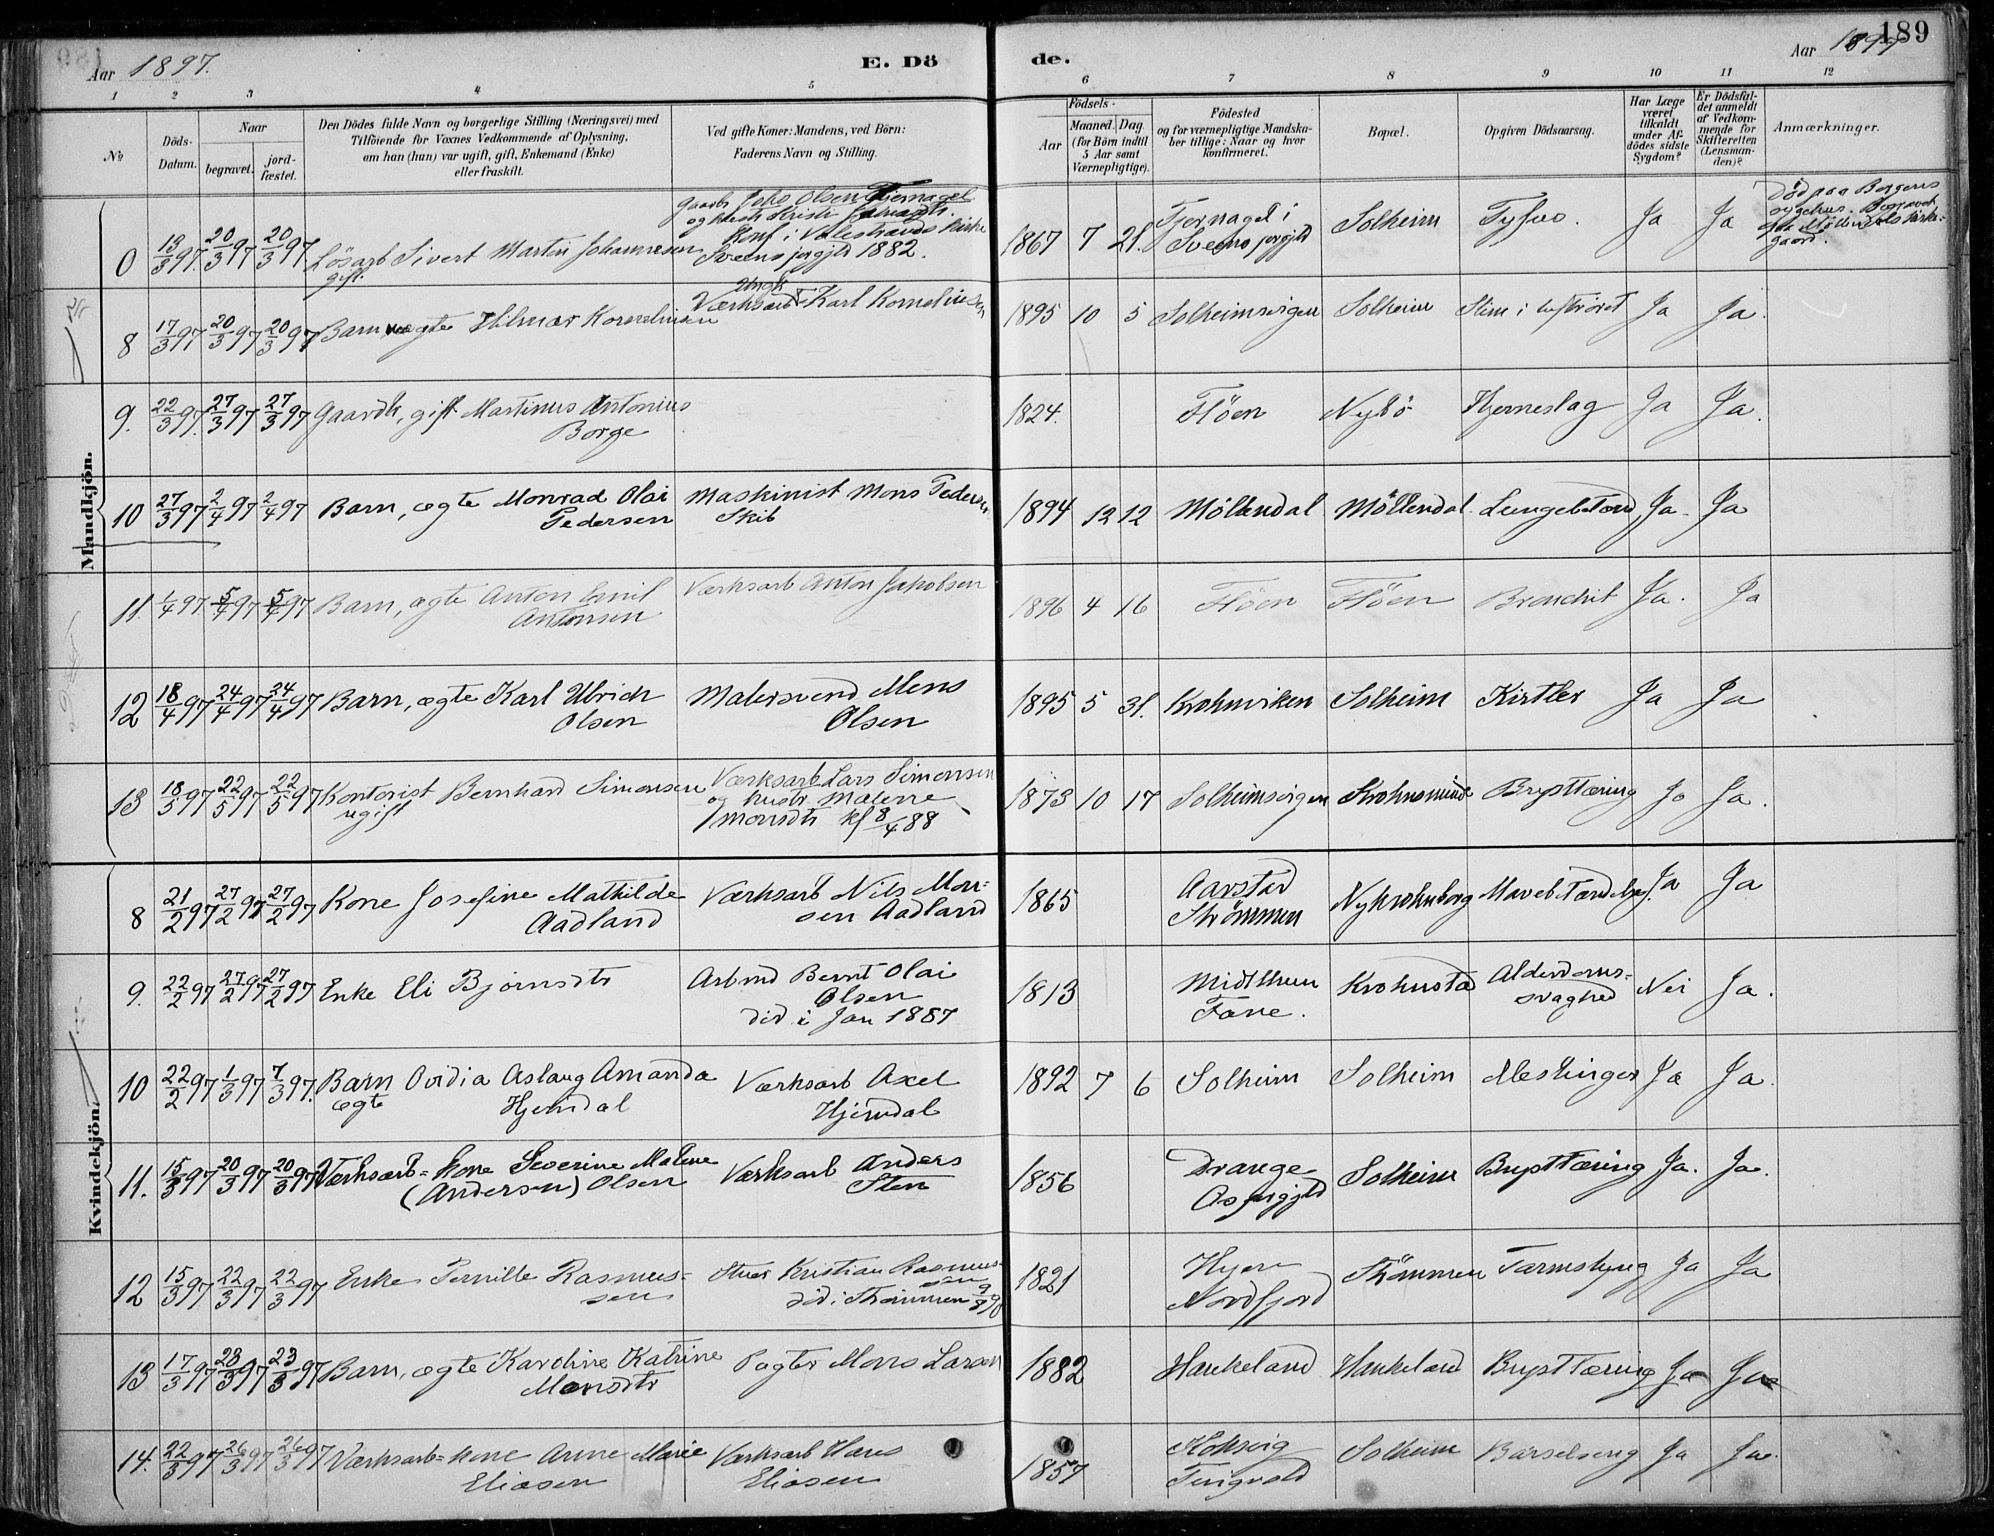 Aar 1897.
E. Dö
de.
Aar 1897
189
1 2 3 4 5 6 7 8 9 10 11 12
№
Döds-Datum.
Naar
begravet.
jord-fæstet.
Den Dödes fulde Navn og borgerlige Stilling (Næringsvei) med
Tilföiende for Voxnes Vedkommende af Oplysning,
om han (hun) var ugift, gift, Enkemand (Enke)
eller fraskilt.
Ved gifte Koner: Mandens, ved Börn:
Faderens Navn og Stilling.
Födsels-
Aar
Maaned. Dag
(for Börn indtil
5 Aar samt
Værnepligtige).
Födested
og for værnepligtige Mandska-
ber tillige: Naar og hvor
konfirmeret.
Bopæl.
Opgiven Dödsaarsag.
Har Læge
været
tilkaldt
under Af-
dödes sidste
Sygdom?
Er Dödsfal-
det anmeldt
af Vedkom-
mende for
Skifteretten
(Lensman-
den)?
Anmærkninger.
Mandkjön.
0 13/3 97. 20/3 97 20/3 97 Lösarb Sivert Martin Johannesen
gift
Gaardb Joho Olsen Tjernagel
og Hustr Kristi
Konf i Valestrands kirke
Sveens prgjld 1882.
1867 7 21. Tjernagel i
Sveens prgjld
Solheim Tyfus. Ja Ja
Död paa Bergens
sygehus. Begravet
paa Möllendals kirke-
gaard.
8 17/3 97 20/3 97 20/3 97 Barn ægte Hilmar Kornelius
Værksarb Karl Kornelius
1895 10 5 Solheimsvigen Solheim Slim i luftröret Ja Ja.
9. 22/3 97. 27/3 97 27/3 97 Gaardb, gift Martinus Antonius
Borge
1824. Flöen Nybö Hjerneslag Ja Ja.
10 27/3 97 2/4 97 2/4 97 Barn, ægte Monrad Olai
Pedersen
Maskinist Mons Pedersen
Skib
1894 12 12 Möllendal Möllendal Lungebetænd. Ja. Ja
11. 1/4 97. 5/4 97 5/4 97 Barn, ægte Anton Emil
Antonsen
Værksarb Anton Jakobsen
1896 4 16 Flöen Flöen Bronchit Ja. Ja
12 18/4 97 24/4 97 24/4 97 Barn, ægte Karl Ulrich
Olsen
Malersvend Mons
Olsen
1895 5 31. Krohnviken Solheim Kirtler Ja Ja
13 18/5 97 22/5 97 22/5 97 Kontorist Bernhard Simonsen
ugift
Værksarb Lars Simonsen
og hustr Malene
Monsdtr kf 8/4 88
1873 10 17 Solheimsvigen Krohnsminde Brysttæring Ja Ja.
Kvindekjön.
8 21/2 97 27/2 97 27/2 97 Kone Josefine Mathilde
Aadland
Værksarb Nils Mon-
sen Aadland
1865 Aarstad
Strömmen
Nykrohnborg Mavebetændelse Ja Ja
9. 22/2 97 27/2 97 27/2 97 Enke Eli Bjørnsdtr
Arbmd Bernt Olai
Olsen
död i Jan 1887
1813 Midtthun
Fane.
Krohnstad Alderdoms-
svaghed Nei Ja.
10 22/2 97 1/3 97 7/3 97. Barn Ovidia Aslaug Amanda
ægte Hjemdal
Værksarb Axel
Hjemdal
1892 7 6 Solheim Solheim Meslinger Ja Ja.
11. 15/3 97 20/3 97 20/3 97 Værksarb- kone Severine Malene
(Andersen) Olsen
Værksarb Anders
Sten
1856 Drange
Os prgjld
Solheim Brysttæring Ja. Ja.
12 15/3 97 22/3 97 22/3 97 Enke Pernille Rasmus-
sen
Stuer Kristian Rasmus-
sen
död i Strömmen 9/8 90
1821 Hyen
Nordfjord
Strömmen Tarmslyng Ja Ja
13 17/3 97 23/3 97 23/3 97 Barn, ægte Karoline Katrine
Monsdtr
Pagter Mons Larsen
1882 Haukeland Haukeland Brysttæring Ja Ja
14. 22/3 97 26/3 97 26/3 97 Værksarb- kone Anne Marie
Eliasen
Værksarb Hans
Eliasen
1857 Holsvig
Tingvold
Solheim Barselseng Ja Ja.